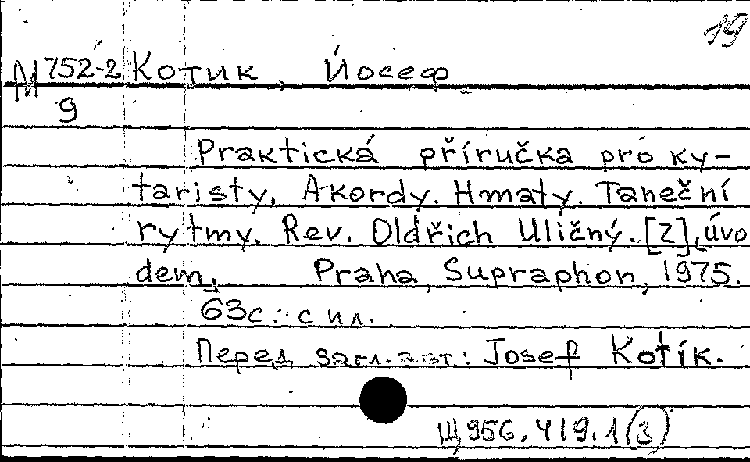 19
М 752-2 Котик, Йосеф
9
Praktická příručka pro ky-
taristy. Akordy. Hmaty. Taneční
rytmy. Rev. Oldřich Uličný. [Z] úvo
dem. Praha, Supraphon, 1975.
63с.: с ил.
Перед загл. авт.: Josef Kotík.
Щ956.419.1(3)